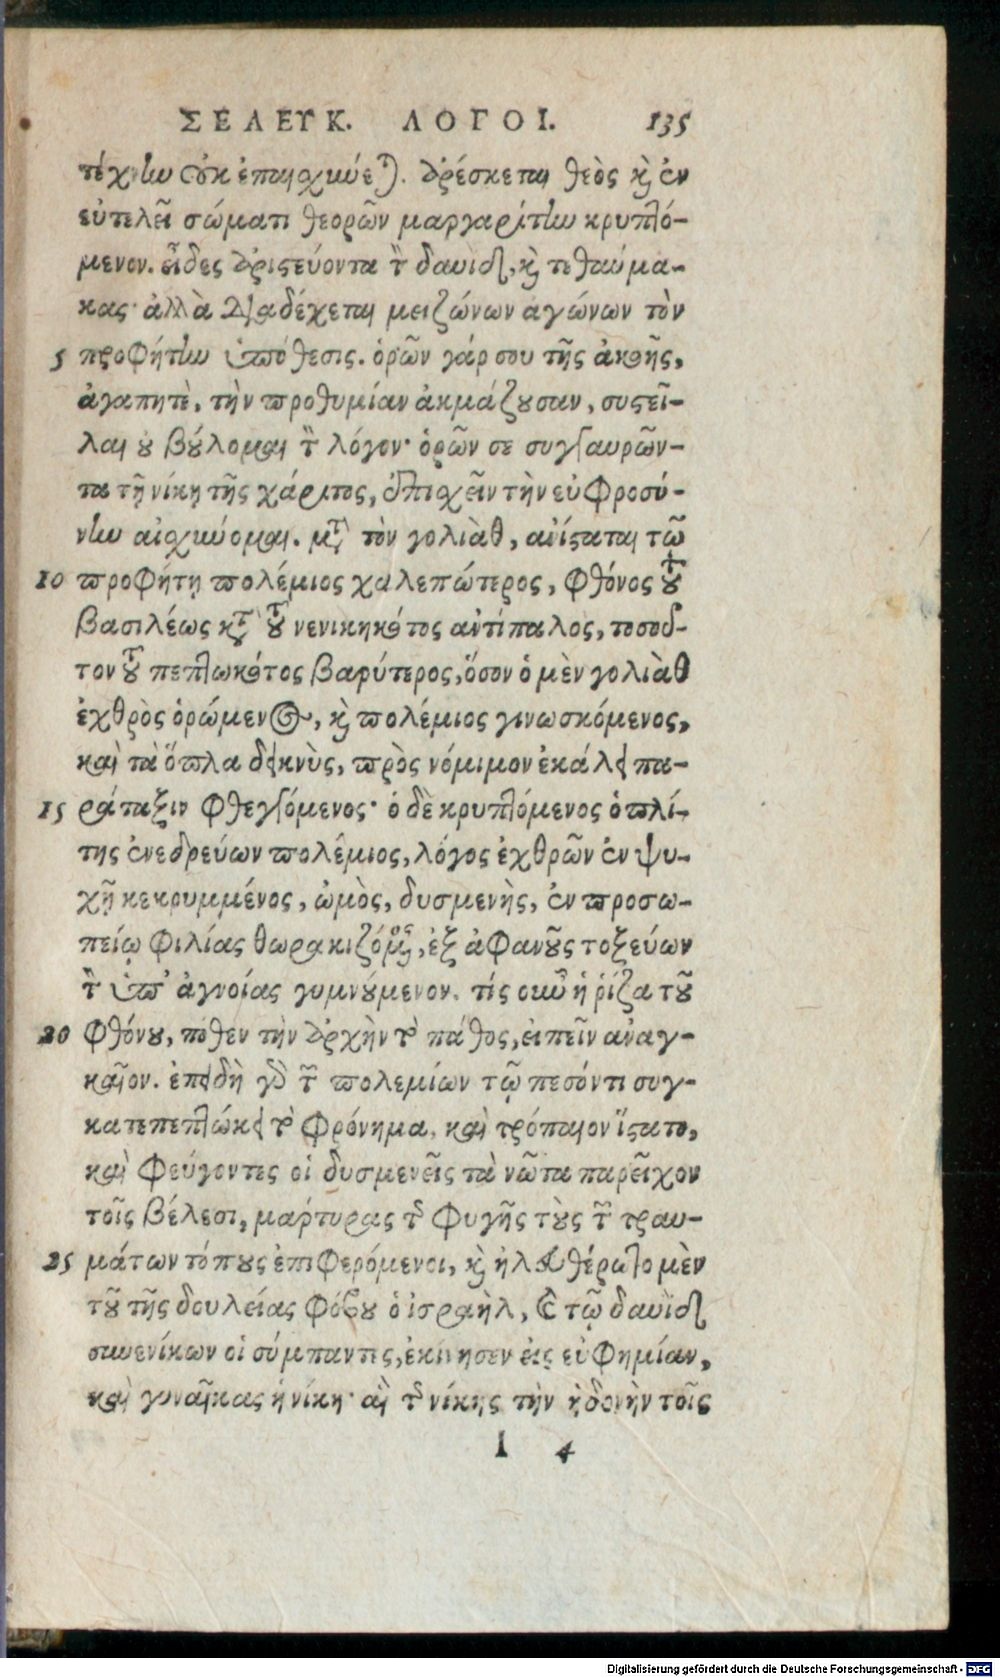 ΣΕΛΕΥΚ. ΛΟΓΟΙ. 135
τέχνην οὐκ ἐπαισχύνεται. ἀρέσκεται θεὸς καὶ ἐν
εὐτελεῖ σώματι θεορῶν μαργαρίτην κρυπτό-
μενον. εἶδες ἀριστεύοντα τὸν δαυὶδ, καὶ τεθαύμα-
κας· ἀλλὰ διαδέχεται μειζόνων ἀγώνων τὸν
5 προφήτην ὑπόθεσις. ὁρῶν γάρ σου τῆς ἀκοῆς,
ἀγαπητὲ, τὴν προθυμίαν ἀκμάζουσαν, συστεῖ-
λαι οὐ βούλομαι τὸν λόγον· ὁρῶν σε συγγαυρῶν-
τα τῇ νίκῃ τῆς χάριτος, ἐπισχεῖν τὴν εὐφροσύ-
νην αἰσχύνομαι. μετὰ τὸν γολιὰθ, ἀνίσταται τῷ
10 προφήτῃ πολέμιος χαλεπώτερος, φθόνος τοῦ
βασιλέως κατὰ τοῦ νενικηκότος ἀντίπαλος, τοσοῦ-
τον τοῦ πεπτωκότος βαρύτερος, ὅσον ὁ μὲν γολιὰθ
ἐχθρὸς ὁρώμενος, καὶ πολέμιος γινωσκόμενος,
καὶ τὰ ὅπλα δεικνὺς, πρὸς νόμιμον ἐκάλει πα-
15 ράταξιν φθεγγόμενος· ὁ δὲ κρυπτόμενος ὁπλί-
της ἐνεδρεύων πολέμιος, λόγος ἐχθρῶν ἐν ψυ-
χῇ κεκρυμμένος, ὠμὸς, δυσμενὴς, ἐν προσω-
πείῳ φιλίας θωρακιζόμενος, ἐξ ἀφανοῦς τοξεύων
τὸν ὑπ' ἀγνοίας γυμνούμενον. τίς οὖν ἡ ῥίζα τοῦ
20 φθόνου, πόθεν τὴν ἀρχὴν τὸ πάθος, εἰπεῖν ἀναγ-
καῖον. ἐπειδὴ γὰρ τῶν πολεμίων τῷ πεσόντι συγ-
κατεπεπτώκει τὸ φρόνημα, καὶ τρόπαιον ἵστατο,
καὶ φεύγοντες οἱ δυσμενεῖς τὰ νῶτα παρεῖχον
τοῖς βέλεσι, μάρτυρας τῆς φυγῆς τοὺς τῶν τραυ-
25 μάτων τόπους ἐπιφερόμενοι, καὶ ἠλευθέρωτο μὲν
τοῦ τῆς δουλείας φόβου ὁ ἰσραὴλ, καὶ τῷ δαυὶδ
συνενίκων οἱ σύμπαντες, ἐκίνησεν εἰς εὐφημίαν,
καὶ γυναῖκας ἡ νίκη· αἳ τῆς νίκης τὴν ἡδονὴν τοῖς
I 4
Digitalisierung gefördert durch die Deutsche Forschungsgemeinschaft - DFG